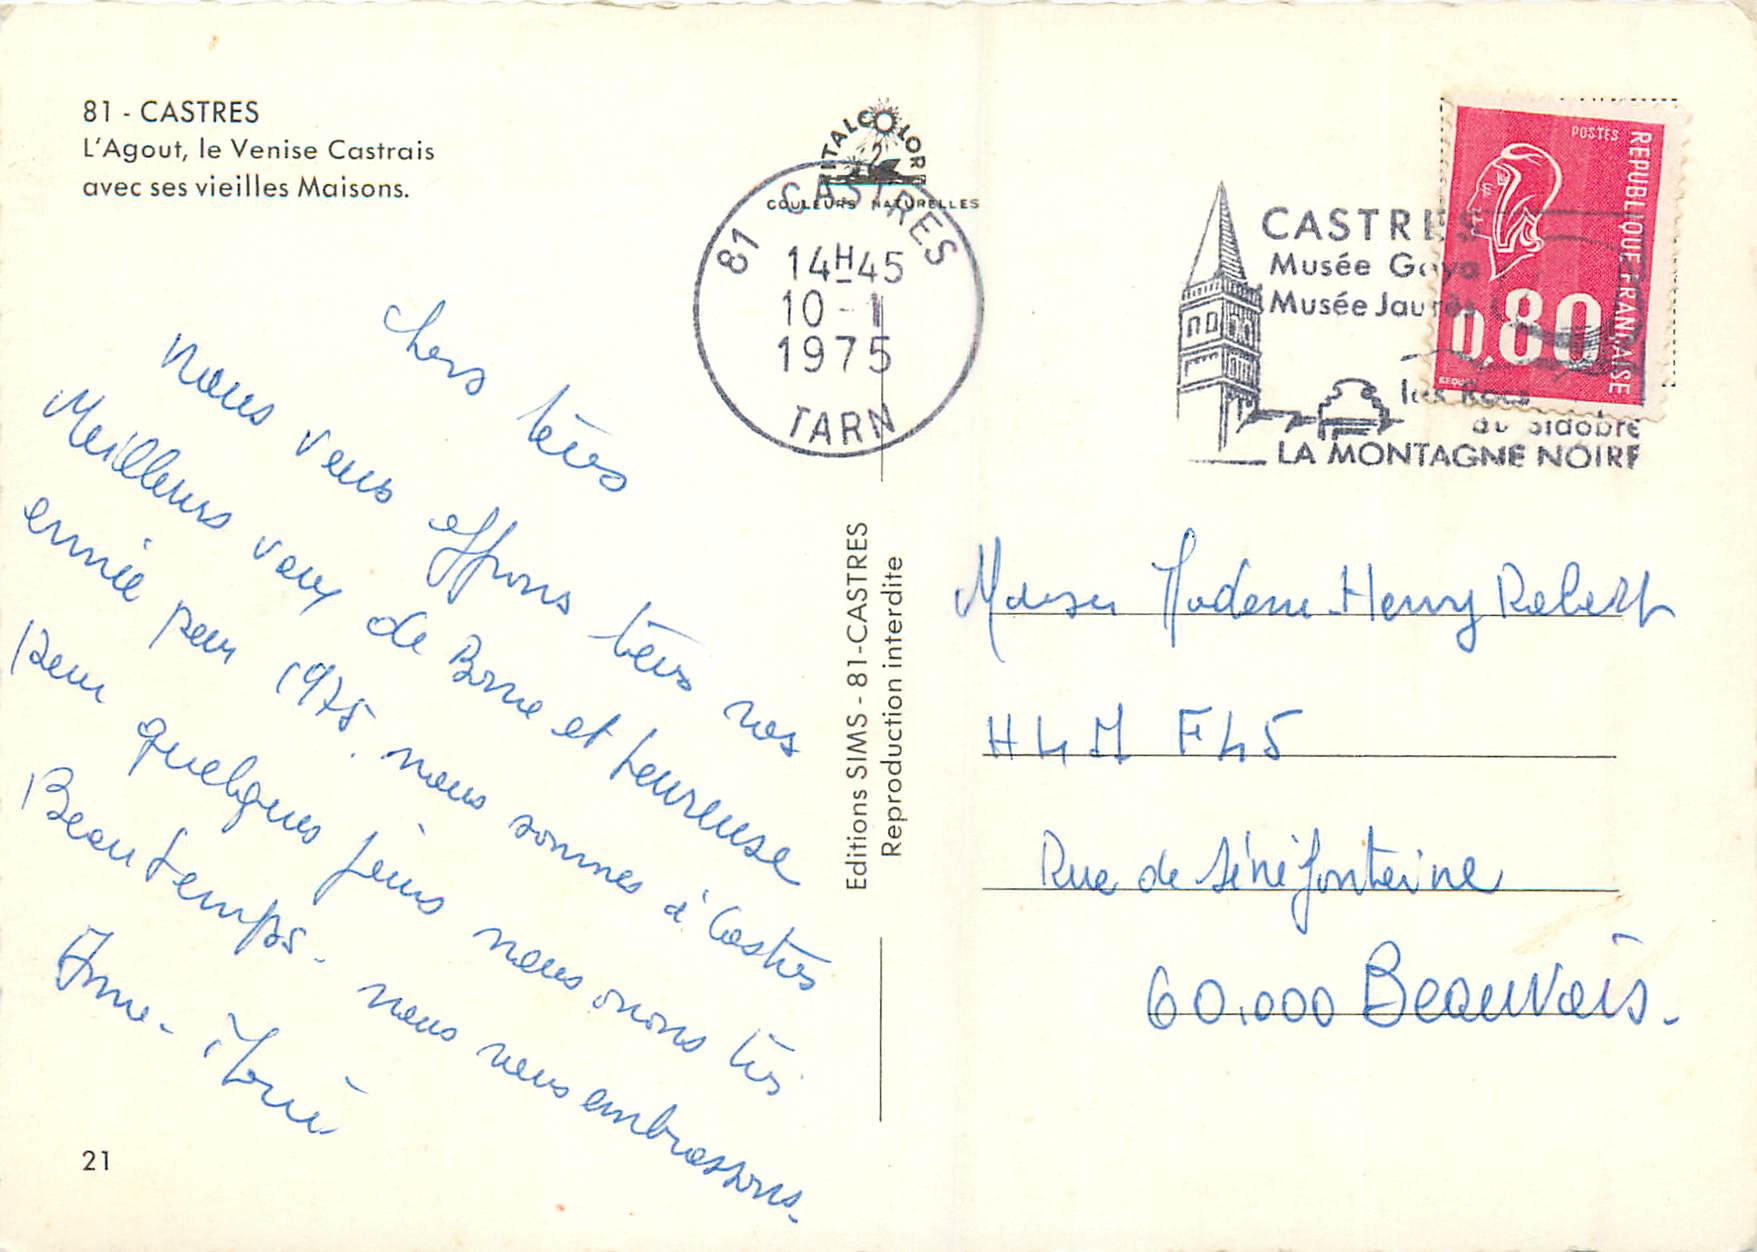 81 - CASTRES
L'Agout, le Venise Castrais
avec ses vieilles Maisons.
ITALCOLOR
COULEURS NATURELLES
81 CASTRES
14H45
10 - 1
1975
TARN
CASTRES
Musée Goya
Musée Jaurès
les Rocs
du Sidobre
LA MONTAGNE NOIRE
POSTES
REPUBLIQUE FRANÇAISE
0,80
chers tous
nous vous offrons tous nos
Meilleurs voeux de Bonne et heureuse
année pour 1975. nous sommes à Castres
pour quelques jours nous avons très
Beau temps. nous vous embrassons.
21
Editions SIMS - 81-CASTRES
Reproduction interdite
Madame Henry Robert
H L M F 45
Rue de Sénéfontaine
60.000 Beauvais.